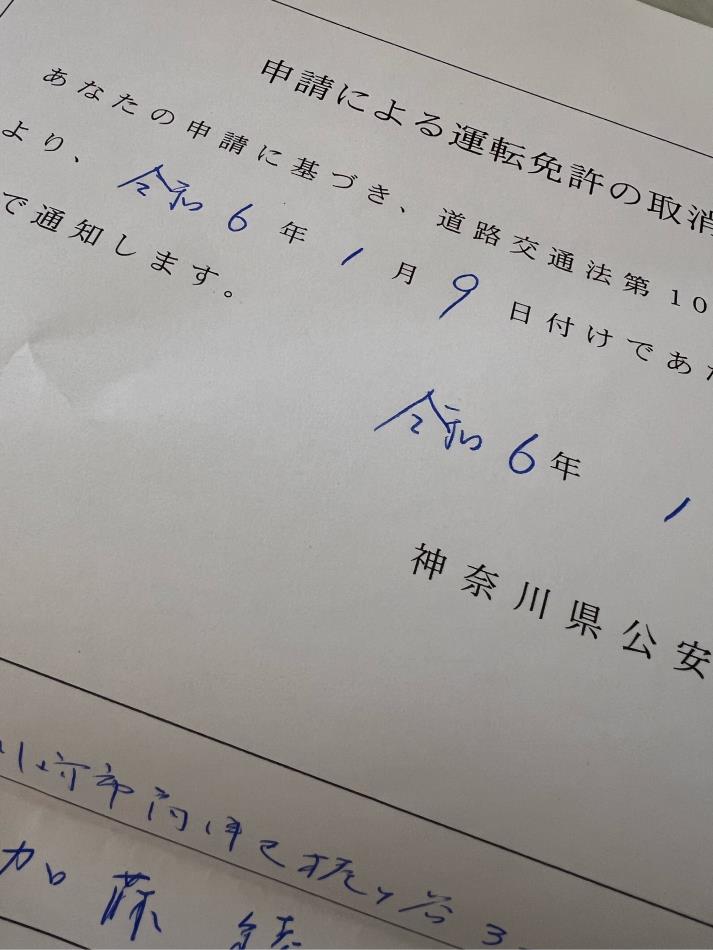 申請による運転免許の取消
あなたの申請に基づき、道路交通法第10
より、令和6年1月9日付けであ
で通知します。
令和6年 1
神奈川県公安
川崎市
加藤